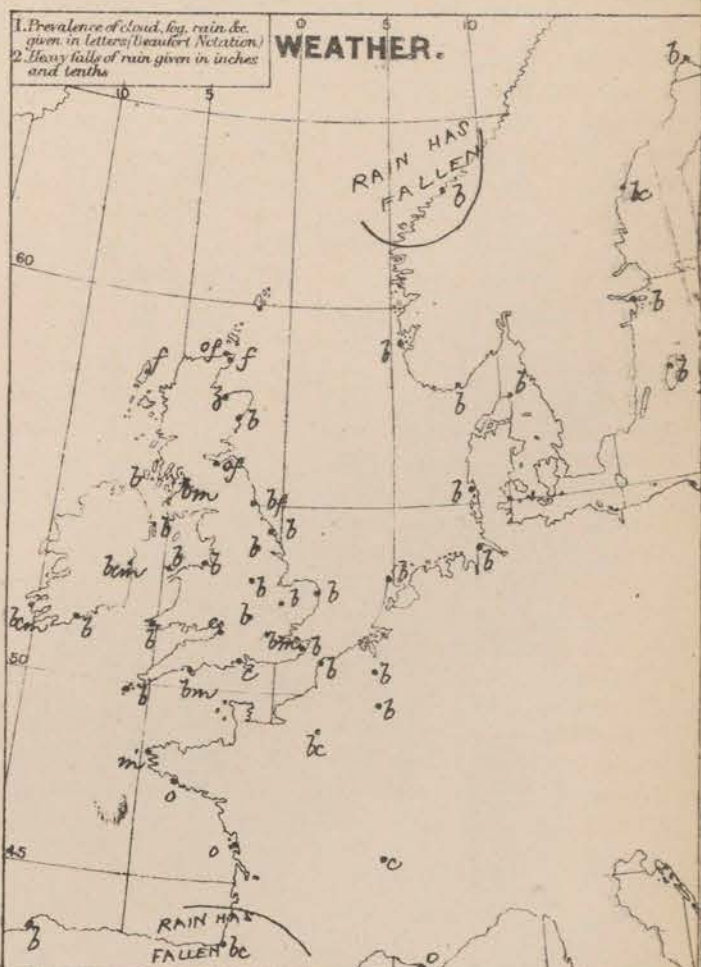 1. Prevalence of cloud, fog, rain &c.
given in letters (Beaufort Notation)
2. Heavy falls of rain given in inches
and tenths
WEATHER.
0
10
5
5
10
b
RAIN HAS
FALLEN
b
bc
60
b
b
b
f
of
f
b
b
b
b
of
b
b
bm
bf
b
b
b
b
b
bcm
b
b
b
b
b
b
bcm
b
b
b
bm
b
b
b
c
50
b
bm
b
bc
m
o
o
c
45
RAIN HAS
FALLEN
b
bc
o